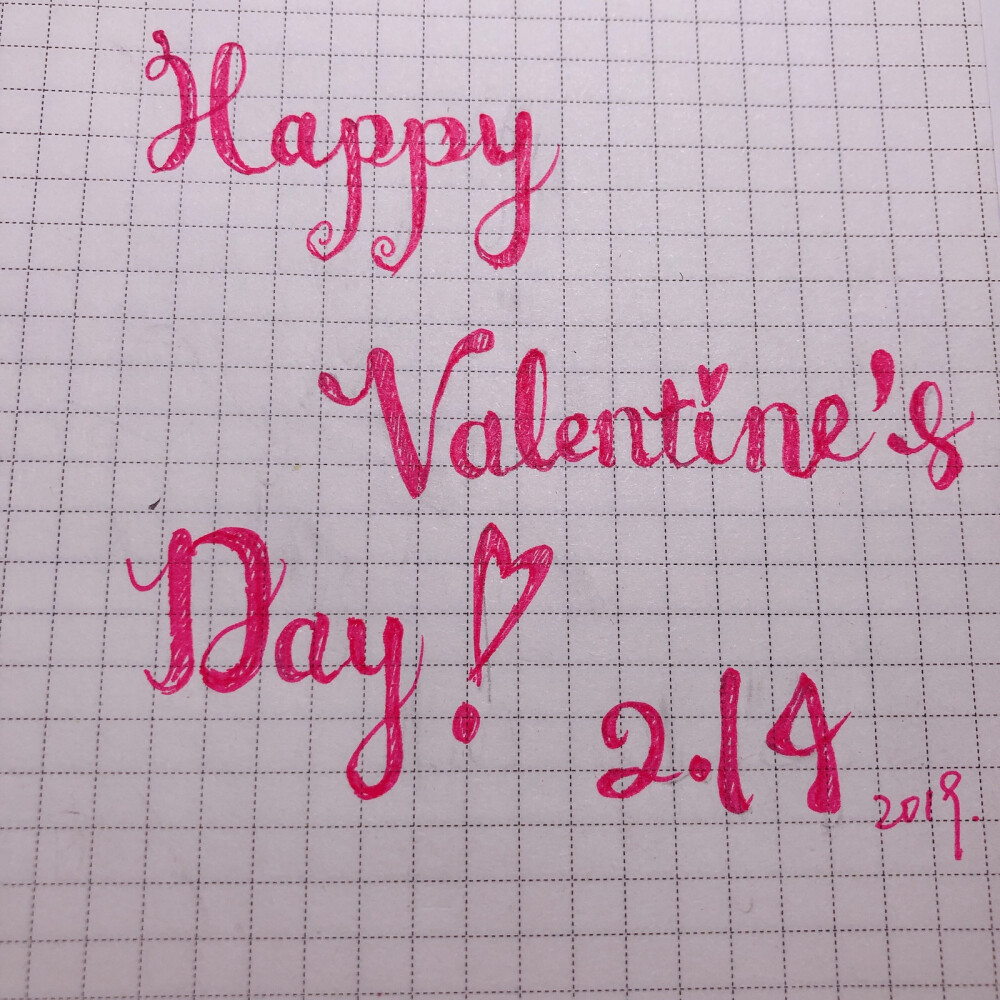 Happy
Valentine's
Day!
2.14
2019.